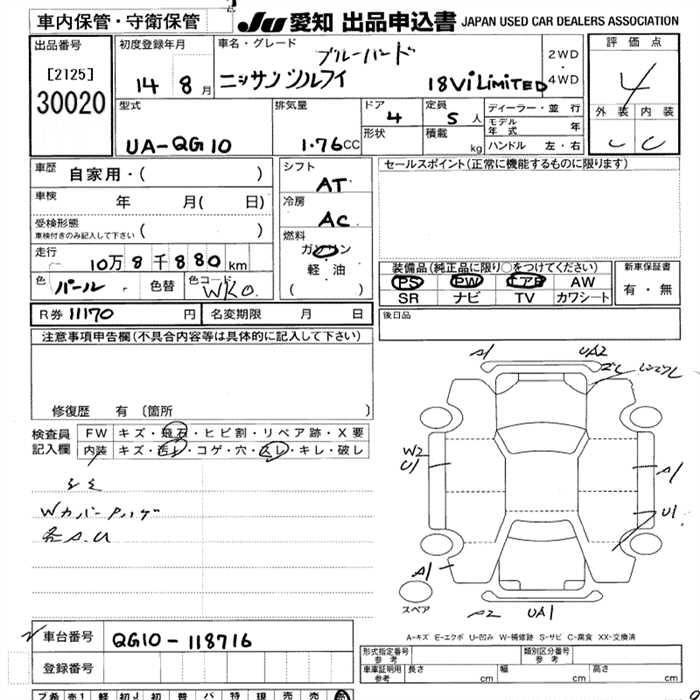 車内保管・守衛保管
JU 愛知 出品申込書 JAPAN USED CAR DEALERS ASSOCIATION
出品番号
[2125]
30020
初度登録年月
14 8 月
車名・グレード
ブルーバード
ニッサン シルフィ 18Vi LiMiTED
2WD
4WD
評価点
4
外装 内装
C
型式
UA-QG10
排気量
1.76CC
ドア
4
形状
定員
5 人
積載
kg
ディーラー・並行
モデル年式 年
ハンドル 左・右
車歴
自家用・( )
車検
年 月( 日)
受検形態
車検付きのみ記入して下さい ( )
走行
10万8千880km
色
パール
色替
色コード
WK0
シフト
AT
冷房
AC
燃料
ガソリン
軽油
( )
セールスポイント(正常に機能するものに限ります)
装備品(純正品に限り○をつけてください)
PS PW エアB AW
SR ナビ TV カワシート
新車保証書
有・無
R券 11170 円
名変期限 月 日
後日品
注意事項申告欄(不具合内容等は具体的に記入して下さい)
修復歴 有 (箇所 )
検査員
記入欄
FW キズ・飛石・ヒビ割・リペア跡・X要
内装 キズ・汚レ・コゲ・穴・スレ・キレ・破レ
シミ
Wカバー
各A.U
A1
UA2
W2
U1
A1
U1
A1
UA1
スペア
A-キズ E-エクボ U-凹み W-補修跡 S-サビ C-腐食 XX-交換済
車台番号
QG10-118716
登録番号
形式指定番号
参考
類別区分番号
参考
車庫証明用
参考
長さ cm 幅 cm 高さ cm